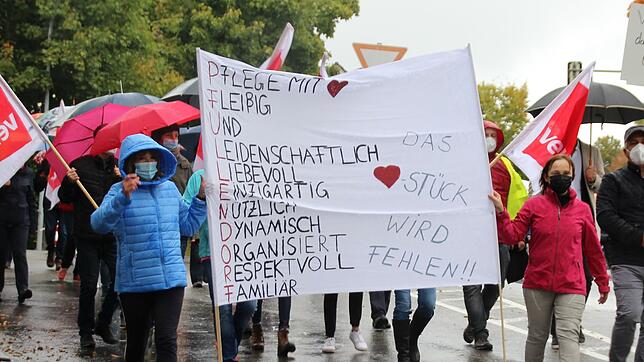 PFLEGE MIT
FLEIßIG
UND
LEIDENSCHAFTLICH
LIEBEVOLL
EINZIGARTIG
NÜTZLICH
DYNAMISCH
ORGANISIERT
RESPEKTVOLL
FAMILIÄR
DAS
STÜCK
WIRD
FEHLEN!!
ver
ver